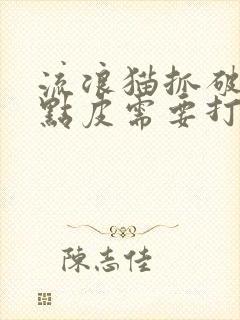 流浪猫抓破
點皮需要打
陳志佳